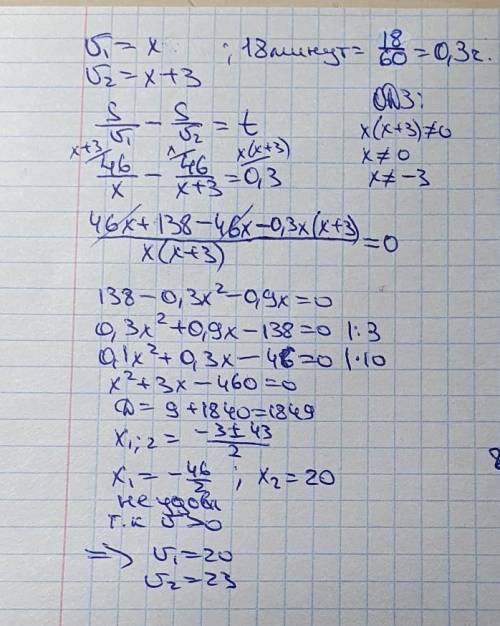 υ₁ = x ; 18 минут = 18/60 = 0,3 ч.
υ₂ = x+3
ОДЗ:
S/υ₁ − S/υ₂ = t
x(x+3) ≠ 0
x ≠ 0
x ≠ −3
x+3/ 46/x − x/ 46/(x+3) = x(x+3)/ 0,3
(46x + 138 − 46x − 0,3x(x+3))/(x(x+3)) = 0
138 − 0,3x² − 0,9x = 0
0,3x² + 0,9x − 138 = 0 |:3
0,1x² + 0,3x − 46 = 0 |·10
x² + 3x − 460 = 0
D = 9 + 1840 = 1849
x₁;₂ = (−3 ± 43)/2
x₁ = −46/2 ; x₂ = 20
не удовл
т.к υ > 0
=> υ₁ = 20
υ₂ = 23